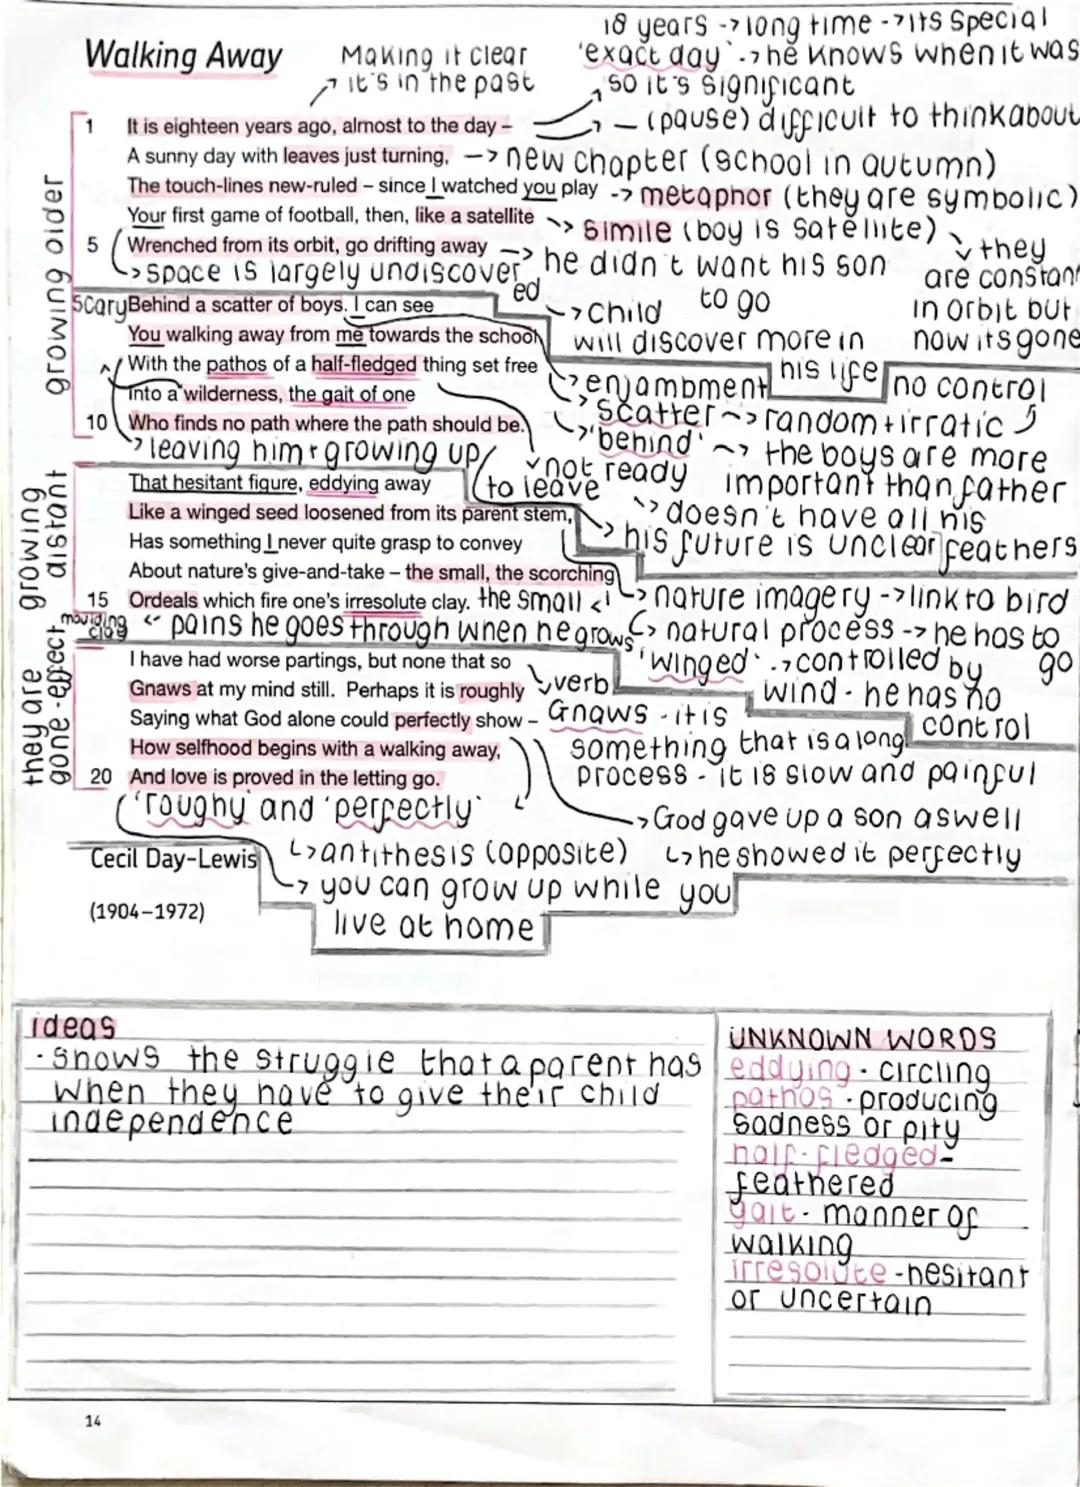 18 years -> long time -> its special
Walking Away
Making it clear
'exact day' -> he knows when it was
-> it's in the past
so it's significant
1 It is eighteen years ago, almost to the day –
-> – (pause) difficult to think about
A sunny day with leaves just turning, -> new chapter (school in autumn)
The touch-lines new-ruled – since I watched you play -> metaphor (they are symbolic)
Your first game of football, then, like a satellite -> simile (boy is satellite)
5 Wrenched from its orbit, go drifting away -> he didn't want his son to go
-> they are constant in orbit but now its gone
-> space is largely undiscovered
scary
-> child will discover more in his life
growing older
Behind a scatter of boys. I can see
You walking away from me towards the school
With the pathos of a half-fledged thing set free
Into a wilderness, the gait of one
10 Who finds no path where the path should be.
-> enjambment
no control
-> scatter -> random + irratic
-> 'behind' -> the boys are more important than father
-> leaving him + growing up
not ready to leave
-> doesn't have all his feathers
they are growing distant
That hesitant figure, eddying away
Like a winged seed loosened from its parent stem,
-> his future is unclear
Has something I never quite grasp to convey
About nature's give-and-take – the small, the scorching
15 Ordeals which fire one's irresolute clay.
the small
-> nature imagery -> link to bird
moulding clay <- pains he goes through when he grows
-> natural process -> he has to go
'winged' -> controlled by wind - he has no control
gone - effect
I have had worse partings, but none that so
Gnaws at my mind still. Perhaps it is roughly
verb
Saying what God alone could perfectly show –
Gnaws - it is something that is a long process - it is slow and painful
How selfhood begins with a walking away,
20 And love is proved in the letting go.
'roughy' and 'perfectly'
-> God gave up a son aswell
-> antithesis (opposite)
-> he showed it perfectly
Cecil Day-Lewis
-> you can grow up while you live at home
(1904–1972)
ideas
· shows the struggle that a parent has
when they have to give their child
independence
UNKNOWN WORDS
eddying - circling
pathos - producing
sadness or pity
half-fledged -
feathered
gait - manner of
walking
irresolute - hesitant
or uncertain
14